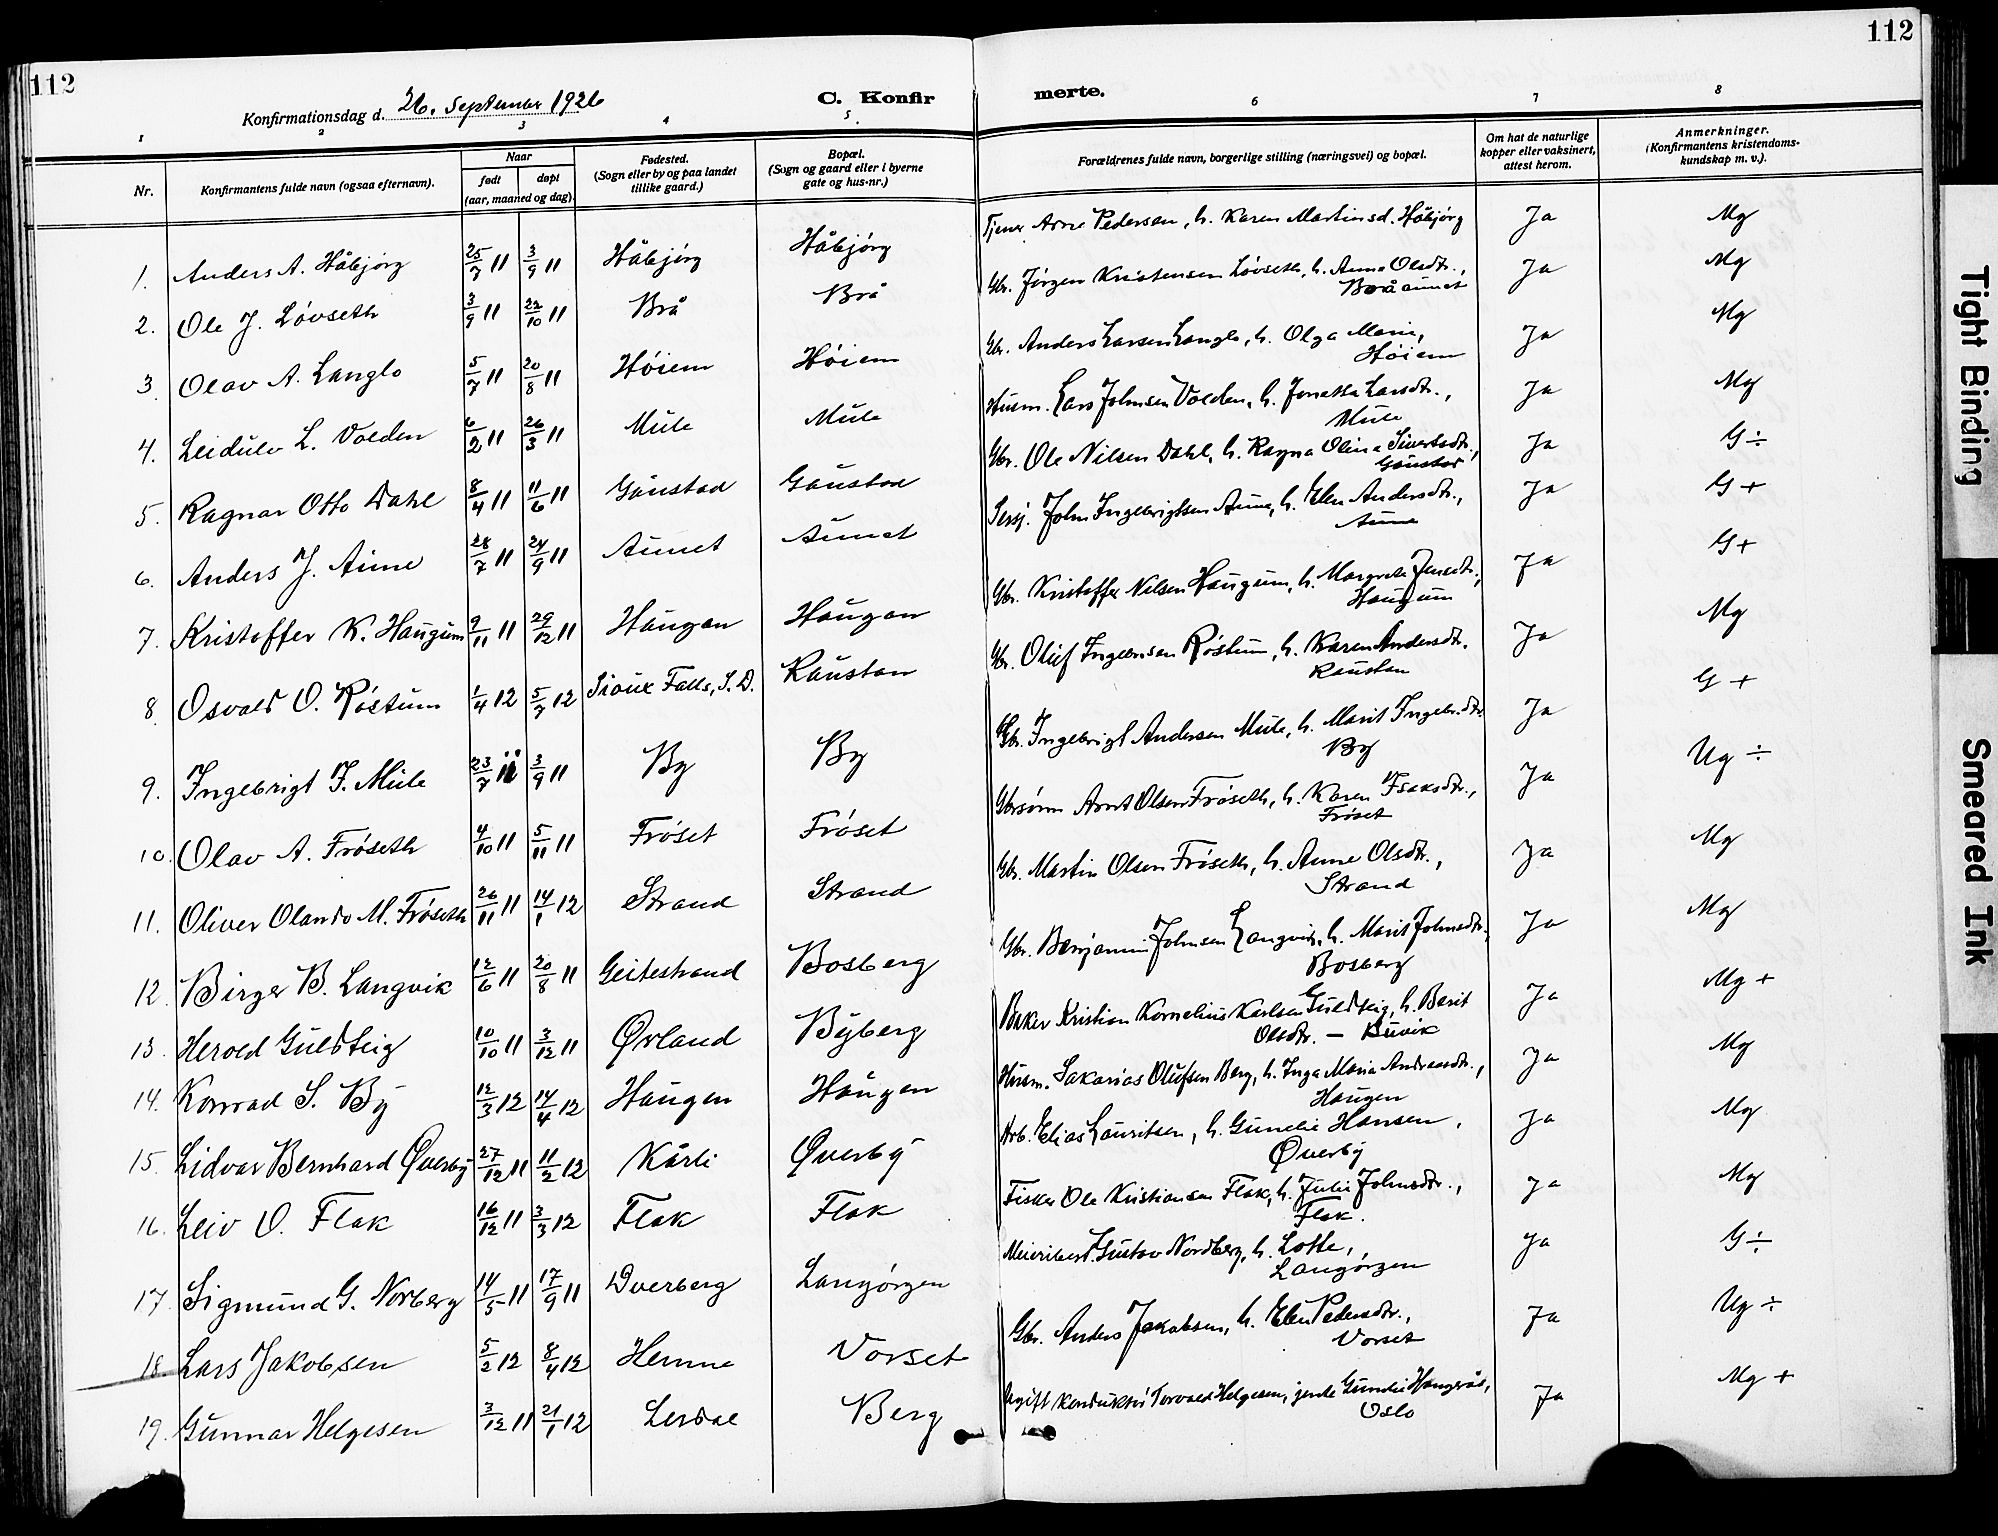 112
112
Konfirmationsdag d. 26. September 1926
C. Konfirmerte.
1 2 3 4 5 6 7 8
Nr.
Konfirmantens fulde navn (ogsaa efternavn).
Naar
født
døpt
(aar, maaned og dag)
Fødested.
(Sogn eller by og paa landet
tillike gaard.)
Bopæl.
(Sogn og gaard eller i byerne
gate og hus-nr.)
Forældrenes fulde navn, borgerlige stilling (næringsvei) og bopæl.
Om hat de naturlige
kopper eller vaksinert,
attest herom.
Anmerkninger.
(Konfirmantens kristendoms-
kundskap m. v.).
1. Anders A. Håbjørg 25/7 11 3/9 11 Håbjørg Håbjørg Tjener Arne Pedersen, h. Karen Martinsd. Håbjørg Ja Mg
2. Ole J. Løvseth 3/9 11 22/10 11 Brå Brå Gbr. Jørgen Kristensen Løvseth, h. Anna Olsdtr., Ja Mg
Bråaunet
3. Olav A. Langlo 5/7 11 20/8 11 Høiem Høiem Gbr. Anders Larsen Langlo, h. Olga Marie, Ja Mg
Høiem
4. Leidulv L. Volden 6/2 11 26/3 11 Mule Mule Husm. Lars Johnsen Volden, h. Jonetta Larsdtr., Ja Mg
Mule
5. Ragnar Otto Dahl 8/4 11 11/6 11 Gaustad Gaustad Gbr. Ole Nilsen Dahl, h. Ragna Olina Sivertsdtr., Ja G ÷
Gaustad
6. Anders J. Aune 28/7 11 24/9 11 Aunet Aunet Sersj. John Ingebrigtsen Aune, h. Elen Andersdtr., Ja G +
Aune
7. Kristoffer K. Haugum 9/11 11 29/12 11 Haugan Haugan Gbr. Kristoffer Nilsen Haugum, h. Margrete Jensdtr., Ja G+
Haugum
8. Osvald O. Røstum 1/4 12 5/7 12 Sioux Falls, S. D. Raustan Gbr. Oluf Ingebrsen Røstum, h. Karen Andersdtr. Ja Mg
Raustan
9. Ingebrigt I. Mule 23/7 11 3/9 11 By By Gbr. Ingebrigt Andersen Mule, h. Marit Ingebr.dtr. Ja G +
By
10. Olav A. Frøseth 4/10 11 5/11 11 Frøset Frøset Gbrsønn Arnt Olsen Frøseth, h. Karen Isaksdtr., Ja Ug ÷
Frøset
11. Oliver Olando M. Frøseth 26/11 11 14/1 12 Strand Strand Gbr. Martin Olsen Frøseth, h. Anne Olsdtr., Ja Mg
Strand
12. Birger B. Langvik 12/6 11 20/8 11 Geitestrand Bosberg Gbr. Benjamin Johnsen Langvik, h. Marit Johnsdtr., Ja Mg
Bosberg
13. Herold Guldteig 10/10 11 3/12 11 Ørland Byberg Baker Kristian Kornelius Karlsen Guldteig, h. Berit Ja Mg +
Olsdtr. — Buvik
14. Konrad S. By 12/3 12 14/4 12 Haugen Haugen Husm. Sakarias Olufsen Berg, h. Inga Maria Andreasdtr., Ja Mg
Haugen
15. Lidvar Bernhard Øverby 27/12 11 11/2 12 Kårli Øverby Arb. Elias Lauritsen, h. Gunelie Hansen, Ja Mg
Øverby
16. Leiv O. Flak 16/12 11 3/3 12 Flak Flak Fisker Ole Kristiansen Flak, h. Julie Johnsdtr., Ja Mg
Flak.
17. Sigmund G. Norberg 14/5 11 17/9 11 Dverberg Langørgen Meieribest. Gustav Nordberg, h. Lotte, Ja G ÷
Langørgen
18. Lars Jakobsen 5/2 12 8/4 12 Hemne Vorset Gbr. Anders Jakobsen, h. Elen Pedersdtr., Ja Ug ÷
Vorset
19. Gunnar Helgesen 3/12 11 21/1 12 Berg Ugift konduktør Torvald Helgesen, jente Gunelie Haugrås, Ja Mg +
Oslo
Tight Binding
Smeared Ink